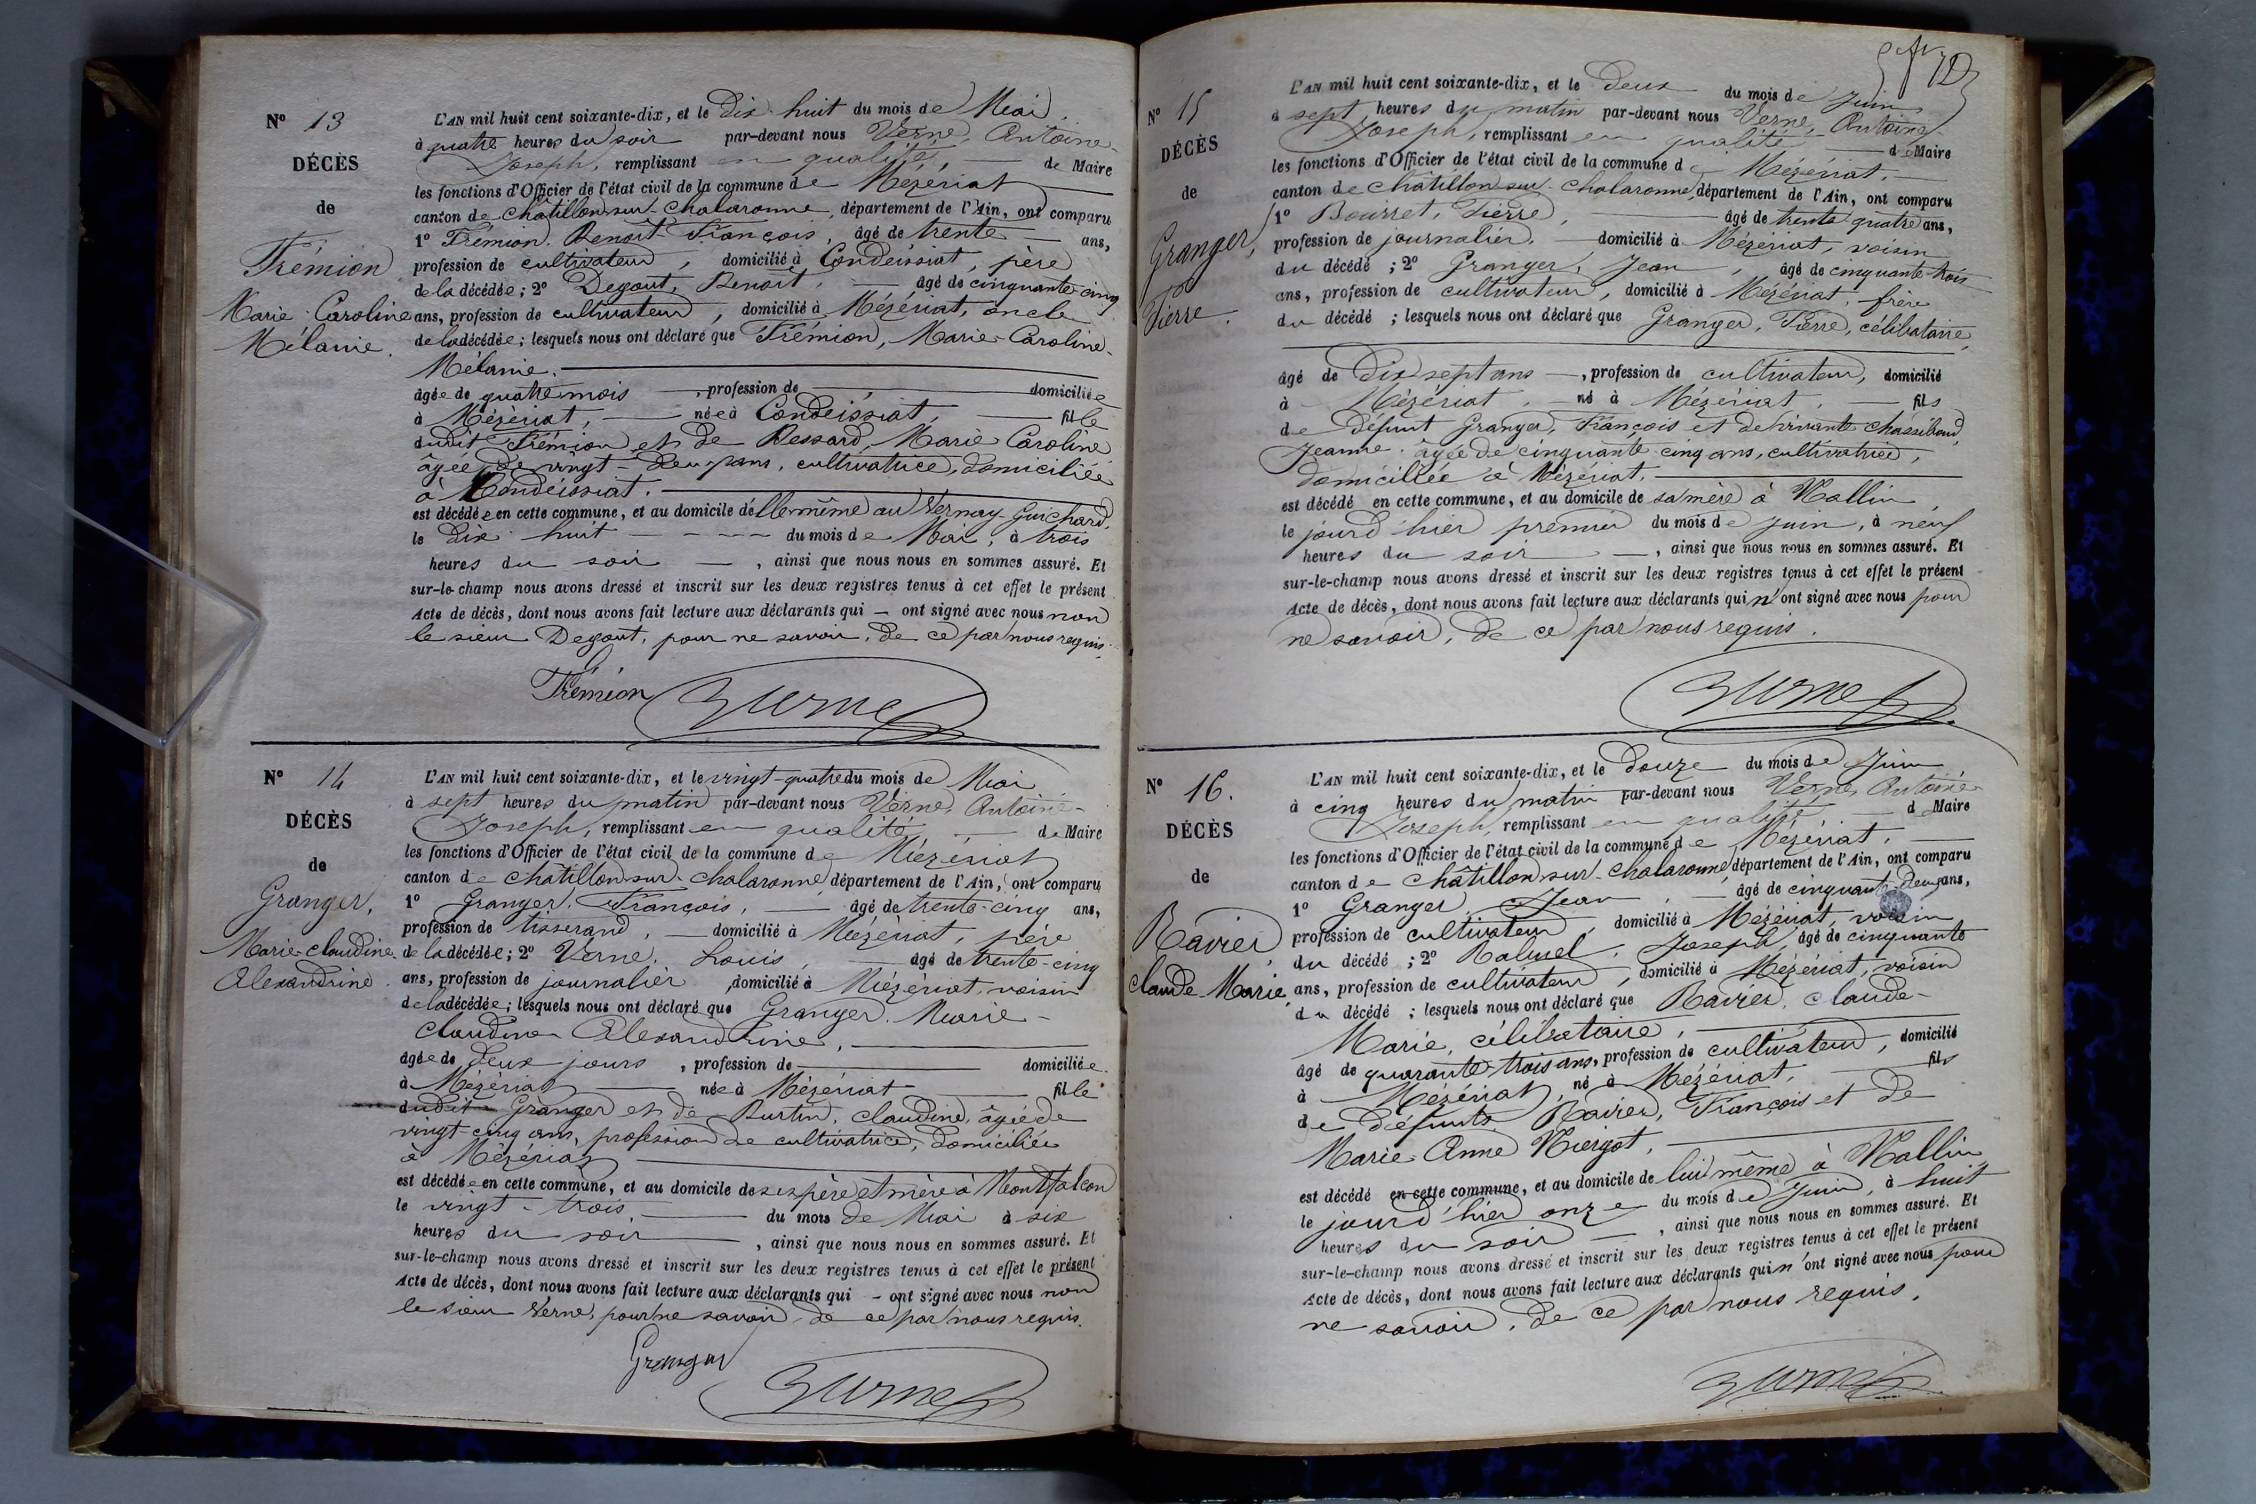 N° 13
DÉCÈS
de
Trémion
Marie-Caroline
Mélanie.
L'AN mil huit cent soixante-dix, et le dix-huit du mois de Mai
à quatre heures du soir par-devant nous Verne, Antoine-
Joseph, remplissant en qualité de Maire
les fonctions d'Officier de l'état civil de la commune de Mézériat
canton de Châtillon-sur-Chalaronne, département de l'Ain, ont comparu
1° Trémion, Benoit-François, âgé de trente ans,
profession de cultivateur, domicilié à Condeissiat, père
de la décédée; 2° Degout, Benoit, âgé de cinquante-cinq
ans, profession de cultivateur, domicilié à Mézériat, oncle
de la décédée; lesquels nous ont déclaré que Trémion, Marie-Caroline-
Mélanie.
âgée de quatre mois, profession de domiciliée
à Mézériat, née à Condeissiat, fille
dudit Trémion et de Bessard, Marie Caroline
âgée de vingt-deux ans, cultivatrice, domiciliée
à Condeissiat.
est décédée en cette commune, et au domicile d'elle-même au Vernay-Guichard,
le dix-huit du mois de Mai, à trois
heures du soir, ainsi que nous nous en sommes assuré. Et
sur-le-champ nous avons dressé et inscrit sur les deux registres tenus à cet effet le présent
Acte de décès, dont nous avons fait lecture aux déclarants qui – ont signé avec nous non
le sieur Degout, pour ne savoir, de ce par nous requis.
Trémion Verne
N° 14
DÉCÈS
de
Granger,
Marie-Claudine
Alexandrine.
L'AN mil huit cent soixante-dix, et le vingt-quatre du mois de Mai
à sept heures du matin par-devant nous Verne, Antoine-
Joseph, remplissant en qualité de Maire
les fonctions d'Officier de l'état civil de la commune de Mézériat
canton de Châtillon-sur-Chalaronne département de l'Ain, ont comparu
1° Granger, François, âgé de trente-cinq ans,
profession de tisserand, domicilié à Mézériat, père
de la décédée; 2° Verne, Louis, âgé de trente-cinq
ans, profession de journalier, domicilié à Mézériat, voisin
de la décédée; lesquels nous ont déclaré que Granger, Marie-
Claudine Alexandrine,
âgée de deux jours, profession de domiciliée
à Mézériat née à Mézériat fille
dudit Granger et de Burtin, Claudine, âgée de
vingt-cinq ans, profession de cultivatrice, domiciliée
à Mézériat
est décédée en cette commune, et au domicile de ses père et mère à Montfalcon
le vingt-trois du mois de Mai à six
heures du soir, ainsi que nous nous en sommes assuré. Et
sur-le-champ nous avons dressé et inscrit sur les deux registres tenus à cet effet le présent
Acte de décès, dont nous avons fait lecture aux déclarants qui – ont signé avec nous non
le sieur Verne, pour ne savoir, de ce par nous requis.
Granger
Verne
N° 15
DÉCÈS
de
Granger,
Pierre.
L'AN mil huit cent soixante-dix, et le deux du mois de Juin
à sept heures du matin par-devant nous Verne, Antoine-
Joseph, remplissant en qualité de Maire
les fonctions d'Officier de l'état civil de la commune de Mézériat.
canton de Châtillon-sur-Chalaronne, département de l'Ain, ont comparu
1° Bourret, Pierre, âgé de trente-quatre ans,
profession de journalier, domicilié à Mézériat, voisin
du décédé; 2° Granger, Jean, âgé de cinquante-trois
ans, profession de cultivateur, domicilié à Mézériat, frère
du décédé; lesquels nous ont déclaré que Granger, Pierre, célibataire,
âgé de dix sept ans, profession de cultivateur, domicilié
à Mézériat, né à Mézériat, fils
de défunt Granger, François et de vivante
Jeanne, âgée de cinquante-cinq ans, cultivatrice,
domiciliée à Mézériat.
est décédé en cette commune, et au domicile de sa mère à Vallin
le jourd'hier premier du mois de Juin, à neuf
heures du soir, ainsi que nous nous en sommes assuré. Et
sur-le-champ nous avons dressé et inscrit sur les deux registres tenus à cet effet le présent
Acte de décès, dont nous avons fait lecture aux déclarants qui n'ont signé avec nous pour
ne savoir, de ce par nous requis.
Verne
N° 16.
DÉCÈS
de
Ravier,
Claude-Marie.
L'AN mil huit cent soixante-dix, et le douze du mois de Juin
à cinq heures du matin par-devant nous Verne, Antoine-
Joseph, remplissant en qualité de Maire
les fonctions d'Officier de l'état civil de la commune de Mézériat,
canton de Châtillon-sur-Chalaronne département de l'Ain, ont comparu
1° Granger, Jean, âgé de cinquante-deux ans,
profession de cultivateur, domicilié à Mézériat, voisin
du décédé; 2° Joseph, âgé de cinquante
ans, profession de cultivateur, domicilié à Mézériat, voisin
du décédé; lesquels nous ont déclaré que Ravier, Claude-
Marie, célibataire,
âgé de quarante-trois ans, profession de cultivateur, domicilié
à Mézériat, né à Mézériat, fils
de défunts Ravier, François et de
Marie-Anne
est décédé en cette commune, et au domicile de lui-même à Vallin
le jourd'hier onze du mois de Juin, à huit
heures du soir, ainsi que nous nous en sommes assuré. Et
sur-le-champ nous avons dressé et inscrit sur les deux registres tenus à cet effet le présent
Acte de décès, dont nous avons fait lecture aux déclarants qui n'ont signé avec nous pour
ne savoir, de ce par nous requis.
Verne